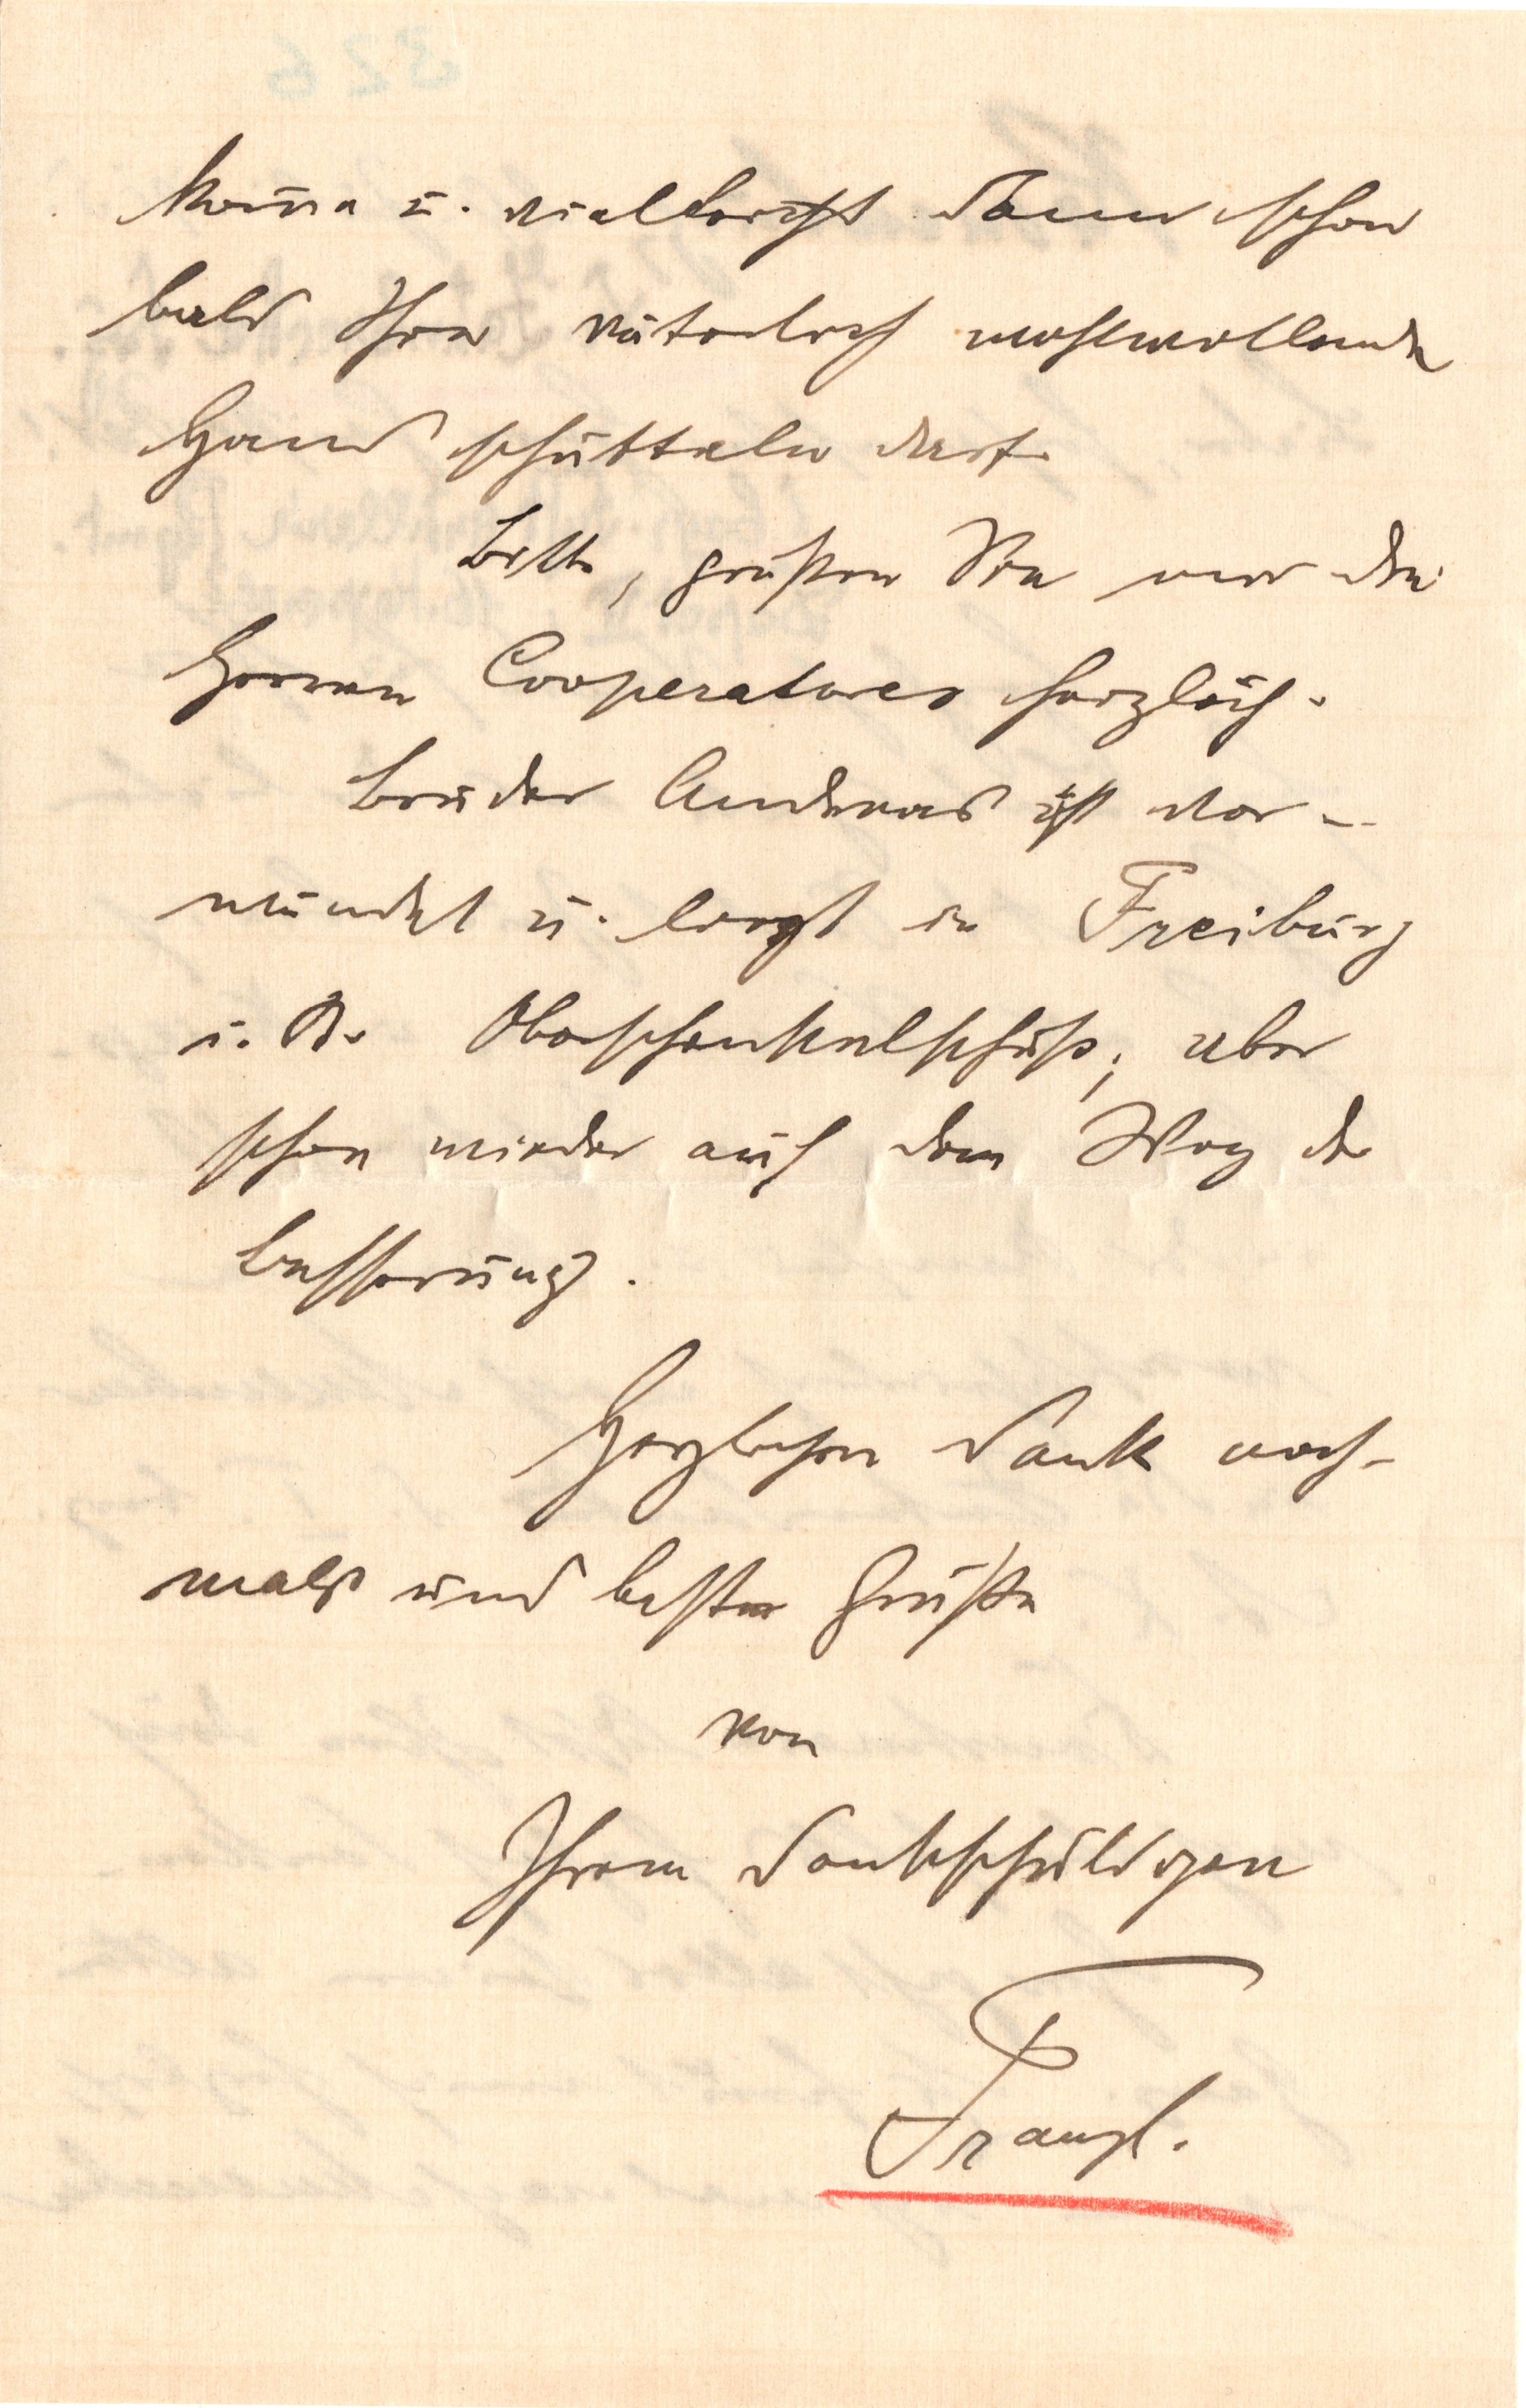 komme u. vielleicht dann schon
bald Ihre väterlich wohlwollende
Hand schütteln darf.
Bitte, grüßen Sie mir die
Herren Cooperatores herzlich.
Bruder Andreas ist ver-
wundet u. liegt in Freiburg
i. B. Oberschenkelschuß; aber
schon wieder auf dem Weg der
Besserung.
Herzlichen Dank noch-
mals und beste Grüße
von
Ihrem dankschuldigen
Franzl.